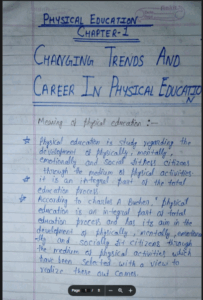 PHYSICAL EDUCATION
CHAPTER-1
CHANGING TRENDS AND
CAREER IN PHYSICAL EDUCATION
Meaning of Physical education :-
Physical education is study regarding the
development of physically, mentally,
emotionally and social fittest citizens
through the medium of physical activities.
it is an integral part of the total
education process.
According to charles A. Bucher, Physical
education is an integral part of total
education process and has its aim in the
development of physically, mentally, emotionally
and socially fit citizens through
the medium of physical activities which
have been selected with a view to
realize these out comes.
Page 1